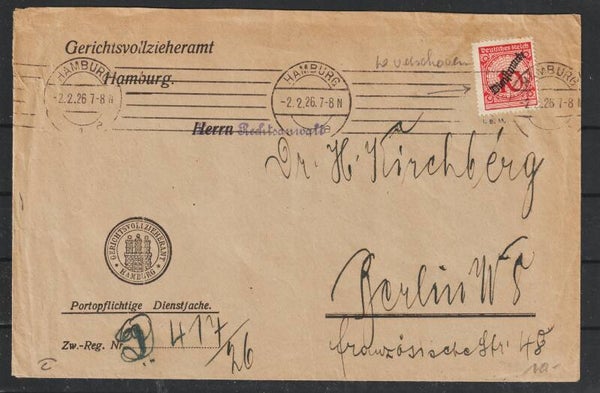 Gerichtsvollzieheramt
Hamburg.
HAMBURG
-2.2.26.7-8 N
HAMBURG
-2.2.26.7-8 N
Deutsches Reich
Dienstmarke
10
Herrn Rechtsanwalt
Dr. H. Kirchberg
GERICHTSVOLLZIEHERAMT
HAMBURG
Berlin W 8
Portopflichtige Dienstsache.
Zw.-Reg. Nr. 417/26
französische Str. 48